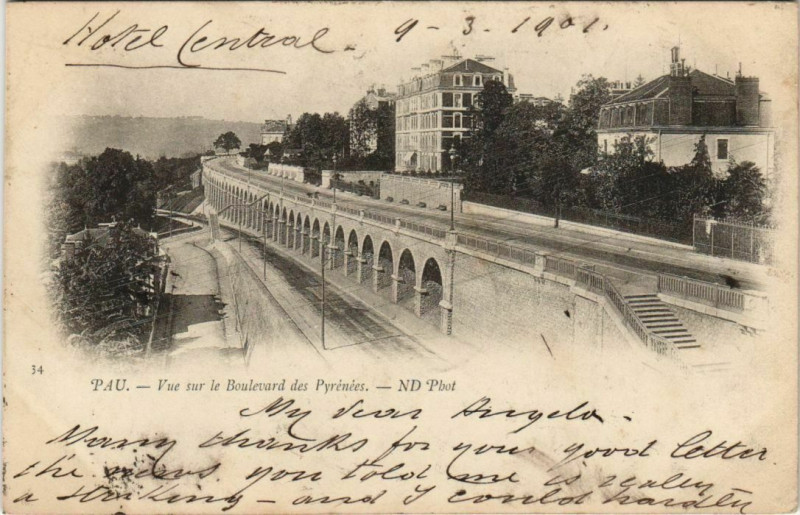 Hotel Central - 9-3.1901.
34
PAU. — Vue sur le Boulevard des Pyrénées. — ND Phot
My dear Angelo -
Many thanks for your good letter
the news you told me is really
a striking - and I could hardly